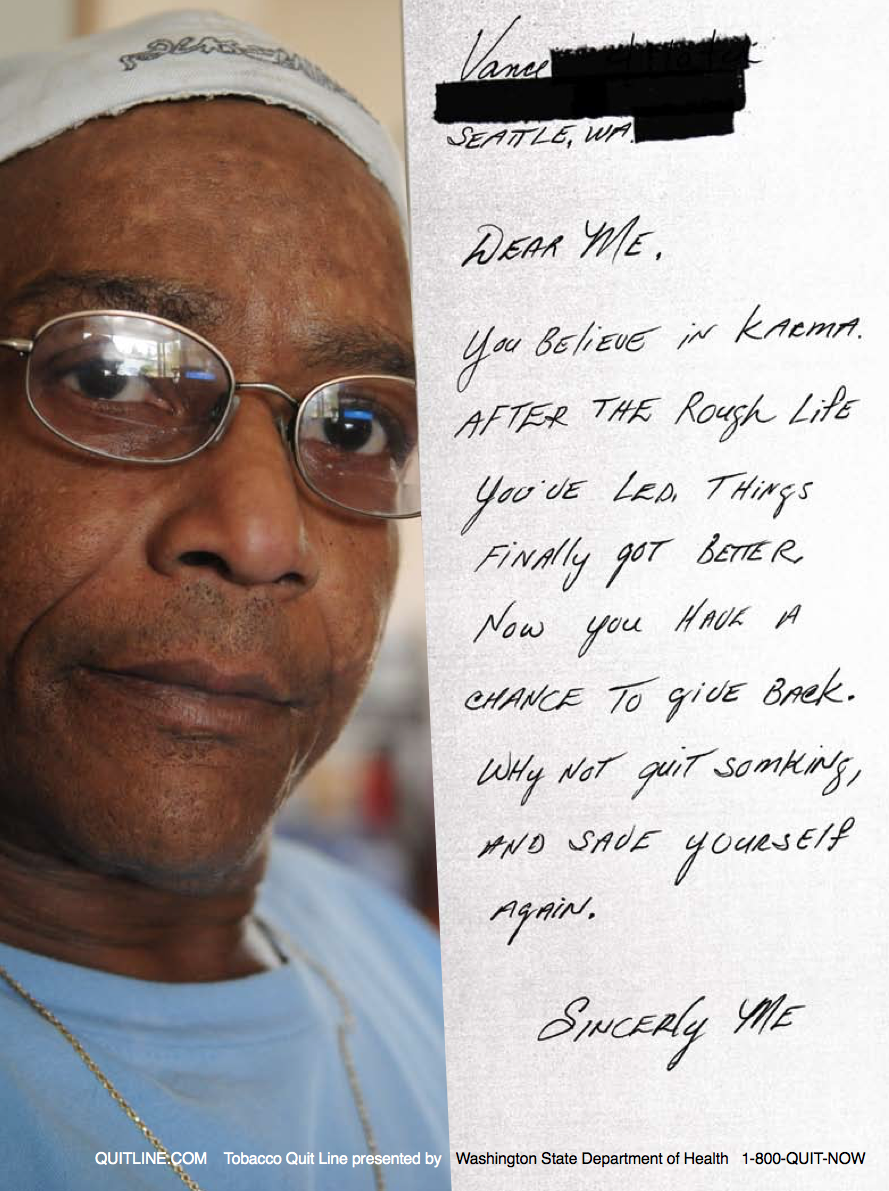 Vance
SEATTLE, WA.
DEAR ME,
You BEliEVE iN KARMA.
AFTER THE Rough LiFE
YOU'VE LED, THiNgS
FiNAlly gOT BETTER,
Now you HAVE A
CHANCE To giVE BAck.
WHy NOT quiT SOMKiNg,
AND SAVE yOURSElf
AgAiN.
SiNCERly ME
QUITLINE.COM Tobacco Quit Line presented by Washington State Department of Health 1-800-QUIT-NOW